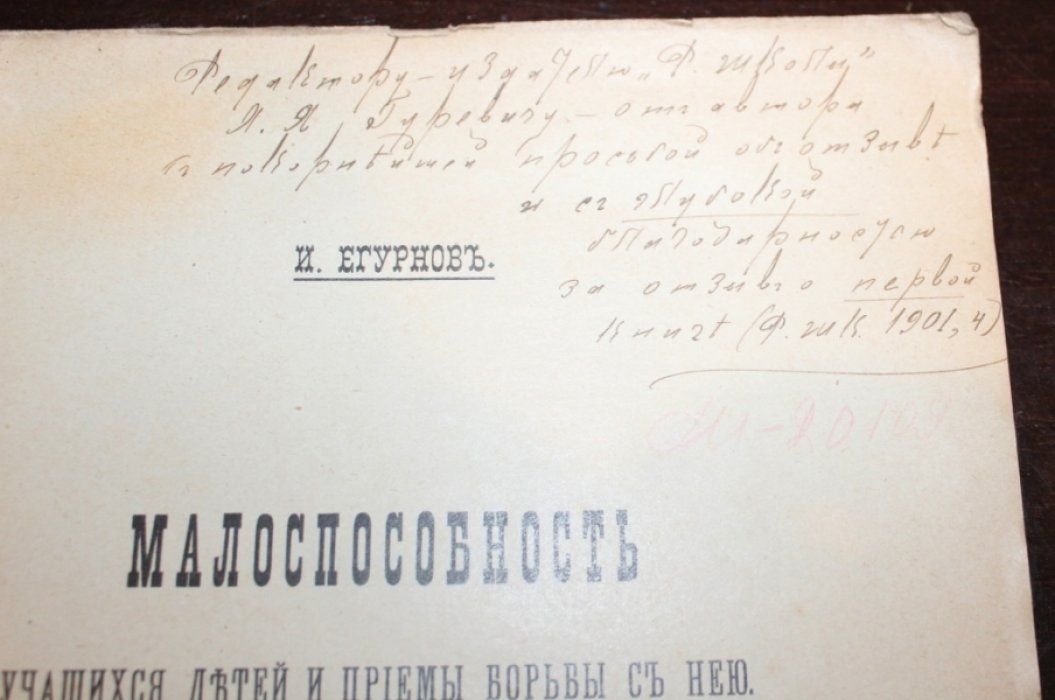 Редактору-издателю „Р. школы"
Я. Я. Гуревичу – отъ автора
съ покорнѣйшей просьбой объ отзывѣ
и съ глубокой
благодарностью
за отзывъ о первой
книгѣ (Р. шк. 1901, 4)
И. ЕГУРНОВЪ.
МАЛОСПОСОБНОСТЬ
УЧАЩИХСЯ ДѢТЕЙ И ПРІЕМЫ БОРЬБЫ СЪ НЕЮ.